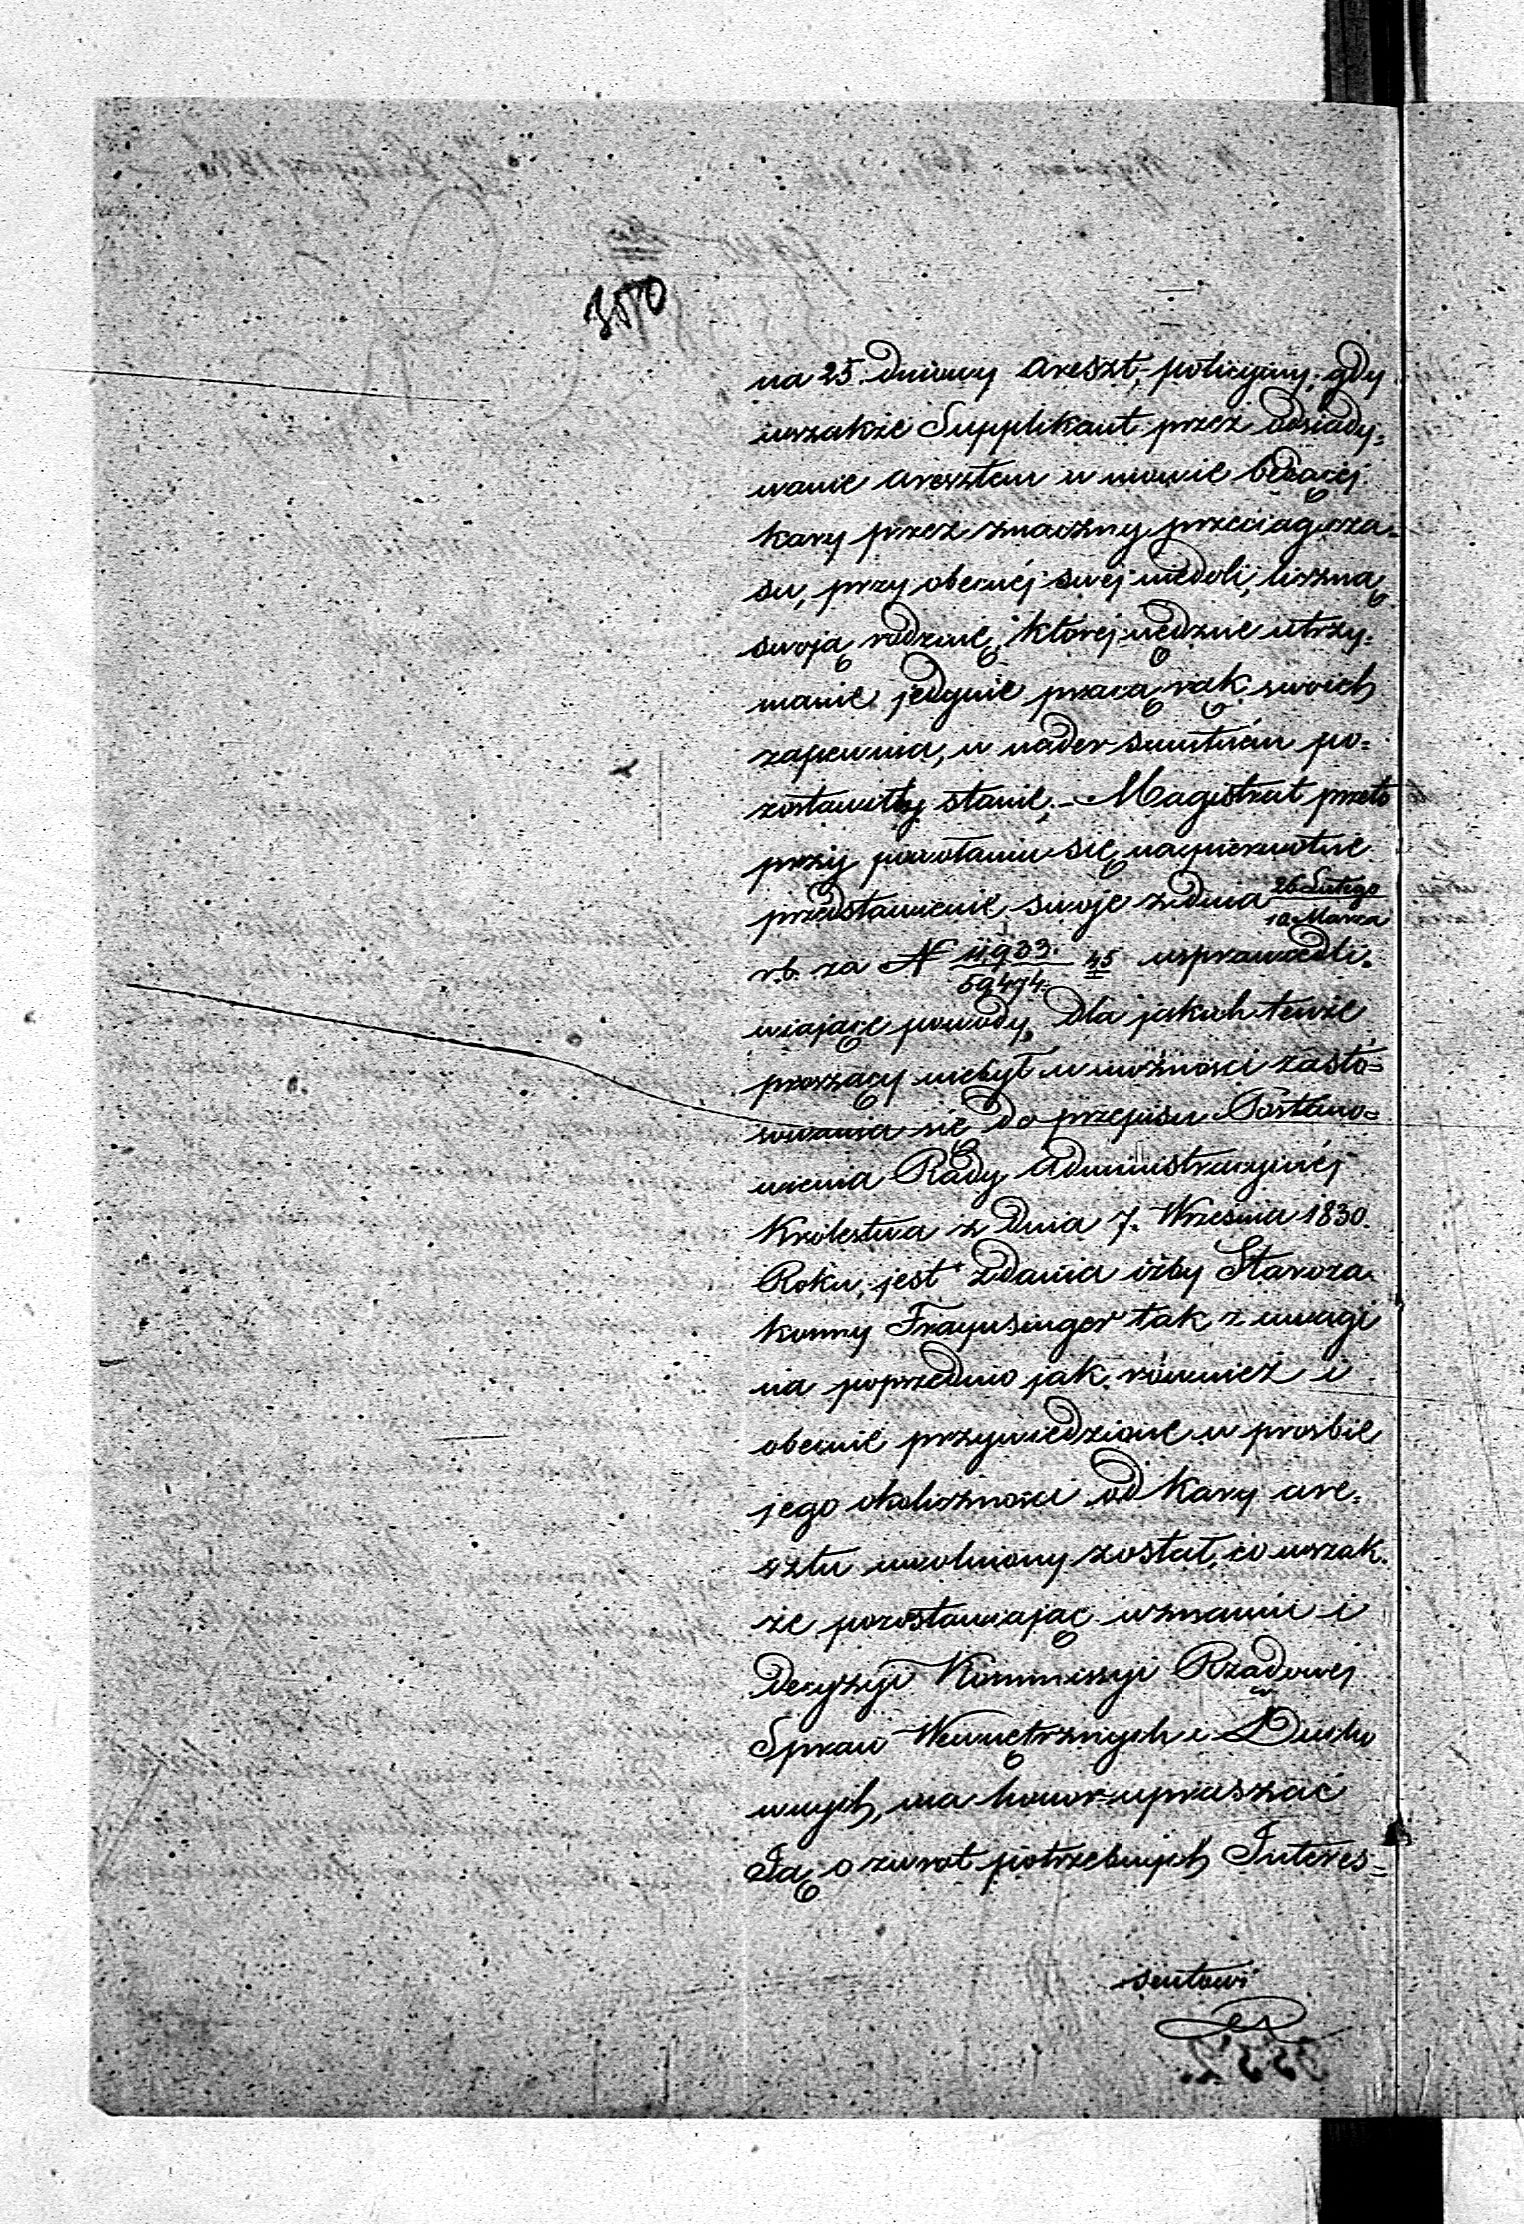 3570
na 25. dniowy areszt policyjny; gdy
wszakże Supplikant przez odsiady=
wanie aresztem w mowie będącéj
kary przez znaczny przeciąg cza=
su, przy obecnéj swej niedoli, liczną
swoją rodzinę, któréj nędzne utrzy=
manie jedynie pracą rąk swoich
zapewnia, w nader smutném po=
zostawiłby stanie, - Magistrat przeto
przy powołaniu się na pierwotne
przedstawienie swoje z dnia 26 Lutego / 10 Marca
r.b. za N 11,933. / 59,474. 45 usprawiedli=
wiające powody, dla jakich tenże
proszący niebył w możności zasto=
sowania się do przepisu Postano=
wienia Rady Administracyjnéj
Królestwa z dnia 7. Września 1830.
Roku, jest zdania iżby Staroza=
konny Fraynsinger tak z uwagi
na poprzednio jak również i
obecnie przywiedzione w prośbie
jego okoliczności od kary are=
sztu uwolniony został, co wszak=
że pozostawiając uznaniu i
decyzyi Kommissyi Rządowéj
Spraw Wewnętrznych i Ducho
wnych, ma honor upraszać
Ją o zwrot potrzebnych Interes=
sentowi